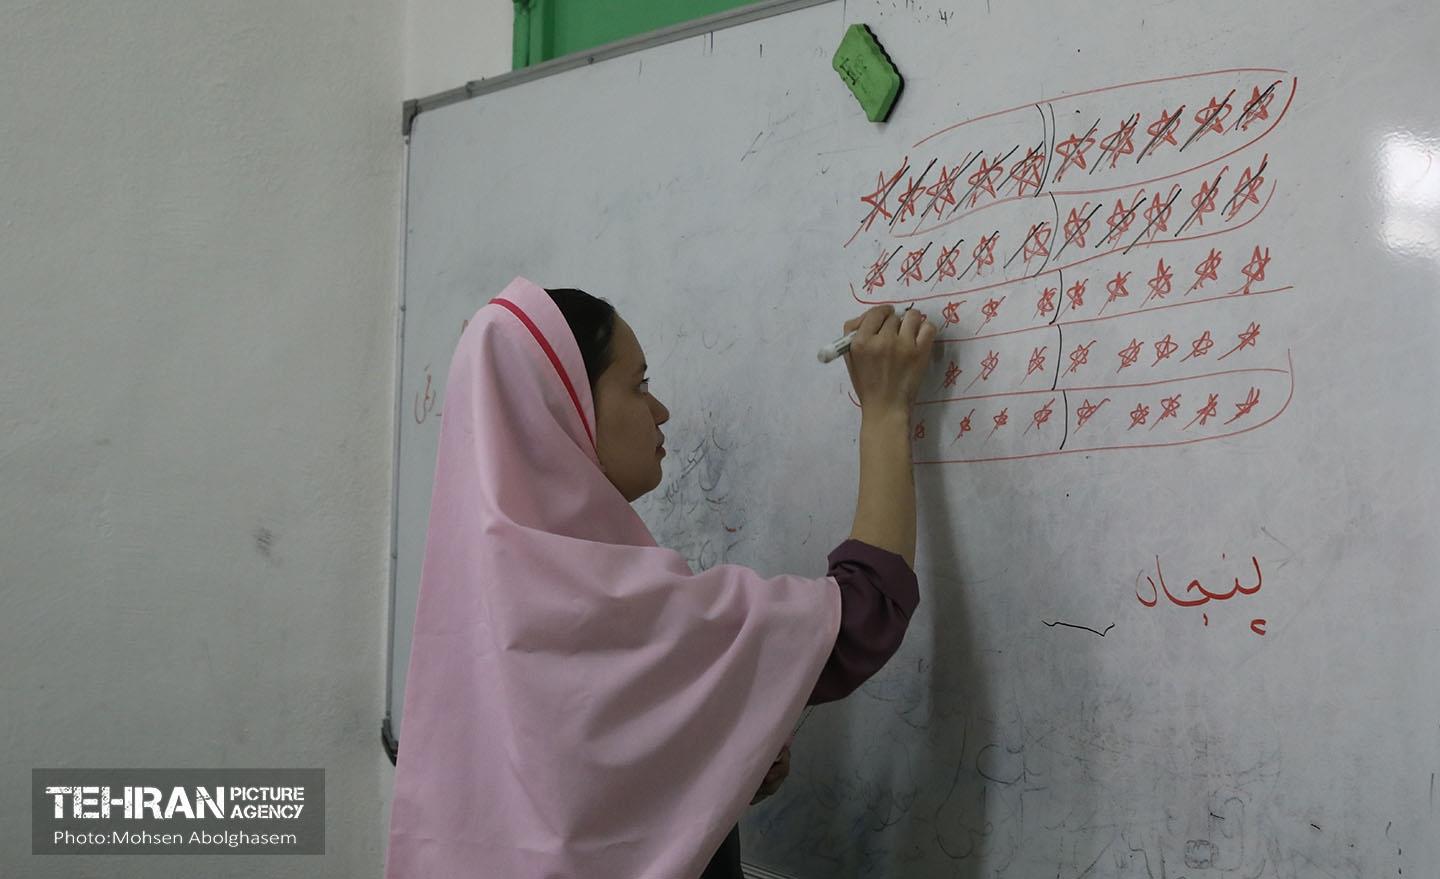 پنجاه
TEHRAN PICTURE AGENCY
Photo:Mohsen Abolghasem